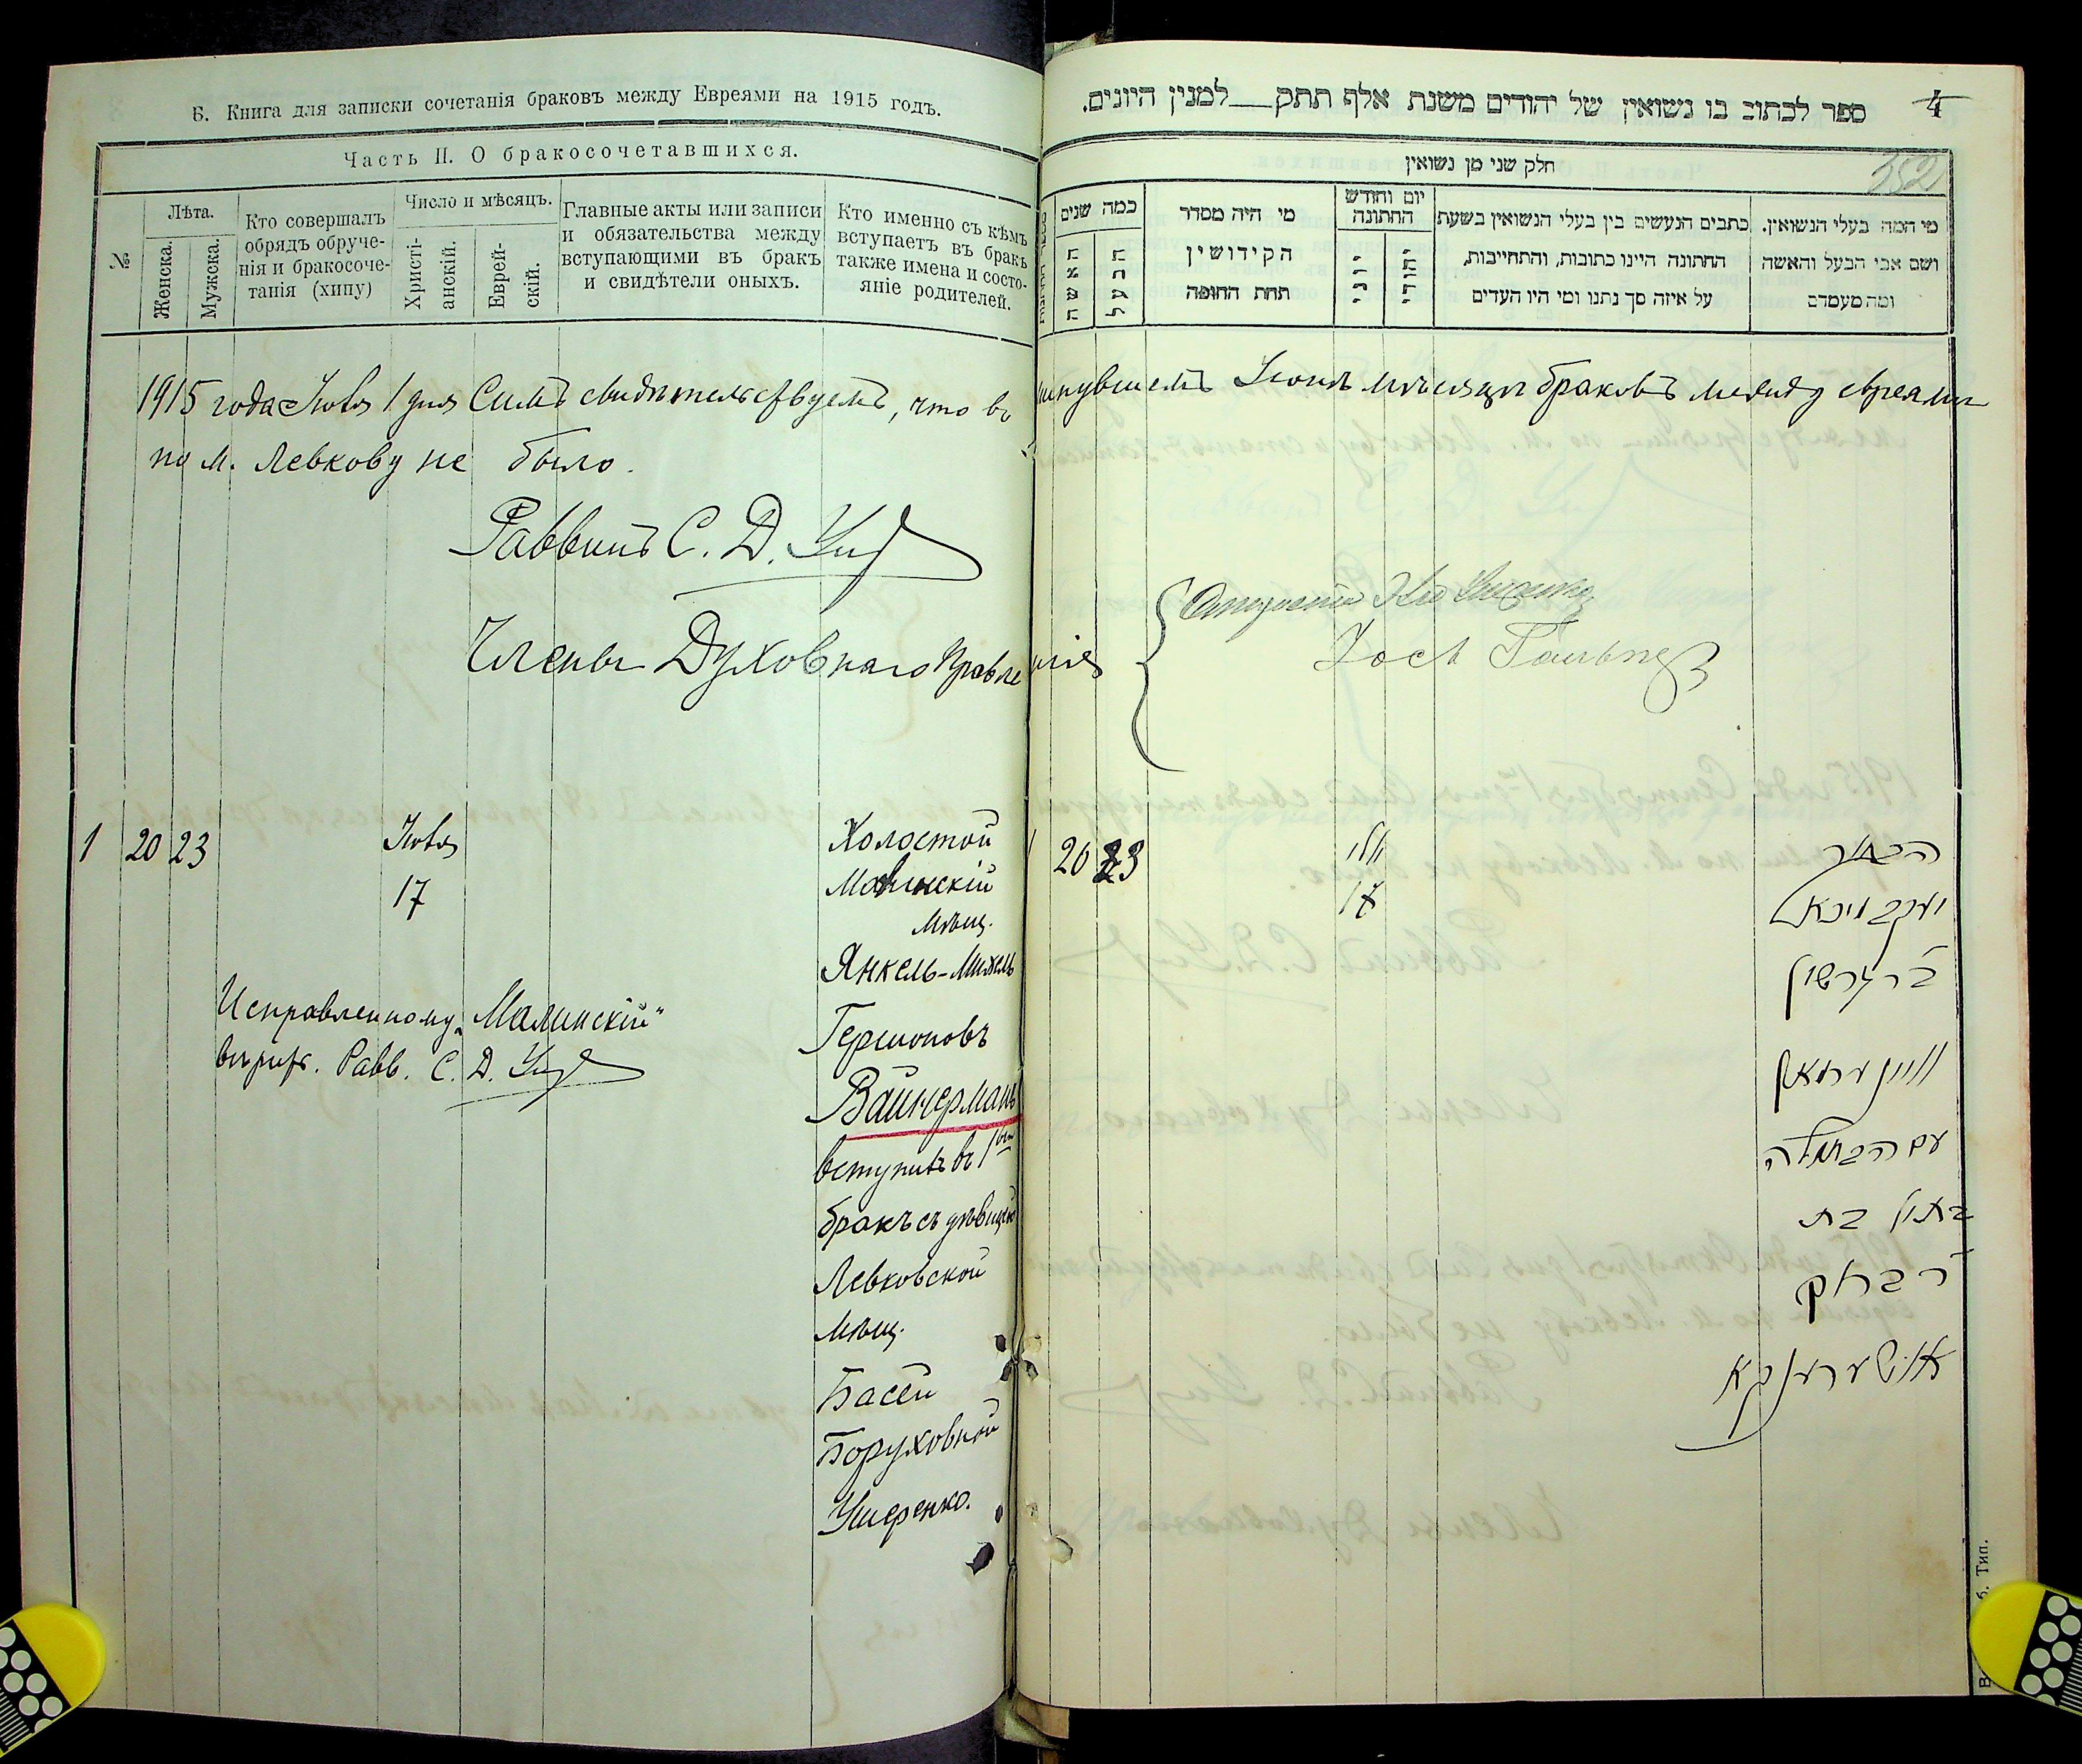 Б. Книга для записки сочетанія браковъ между Евреями на 1915 годъ.
Часть II. О бракосочетавшихся.
№
Лѣта.
Женска.
Мужска.
Кто совершалъ
обрядъ обруче-
нія и бракосоче-
танія (хипу)
Число и мѣсяцъ.
Христі-
анскій.
Еврей-
скій.
Главные акты или записи
и обязательства между
вступающими въ бракъ
и свидѣтели оныхъ.
Кто именно съ кѣмъ
вступаетъ въ бракъ
также имена и состо-
яніе родителей.
1915 года Іюля 1 дня Симъ свидѣтельствуемъ, что въ
по м. Левкову не было.
Раввинъ С. Д.
Члены Духовнаго Правле
1 20 23
Іюля
17
Холостой
Малинскій
мѣщ.
Янкель-Михель
Гершоновъ
Вайнерманъ
вступилъ въ 1вый
бракъ съ дѣвицей
Левковской
мѣщ.
Басей
Боруховной
Ушеренко.
Исправленному „Малинскій"
вѣрить. Равв. С. Д.
4
ספר לכתוב בו נשואין של יהודים משנת אלף תתק__למנין היונים.
352
חלק שני מן נשואין
כמה שנים
האשה
הבעל
מי היה מסדר
הקידושין
תחת החופה
יום וחודש
החתונה
יוני
יהודי
כתבים הנעשים בין בעלי הנשואין בשעת
החתונה היינו כתובות, והתחייבות,
על איזה סך נתנו ומי היו העדים
מי המה בעלי הנשואין.
ושם אבי הבעל והאשה
ומה מעמדם
минувшемъ Іюнѣ мѣсяцѣ браковъ между евреями
нія
Іось
1 20 23
יולי
17
הבחור
יעקב מיכאל
בר גרשון
ווײנערמאן
עם הבתולה
בת
ר ברוך
אושערענקא
Тип.